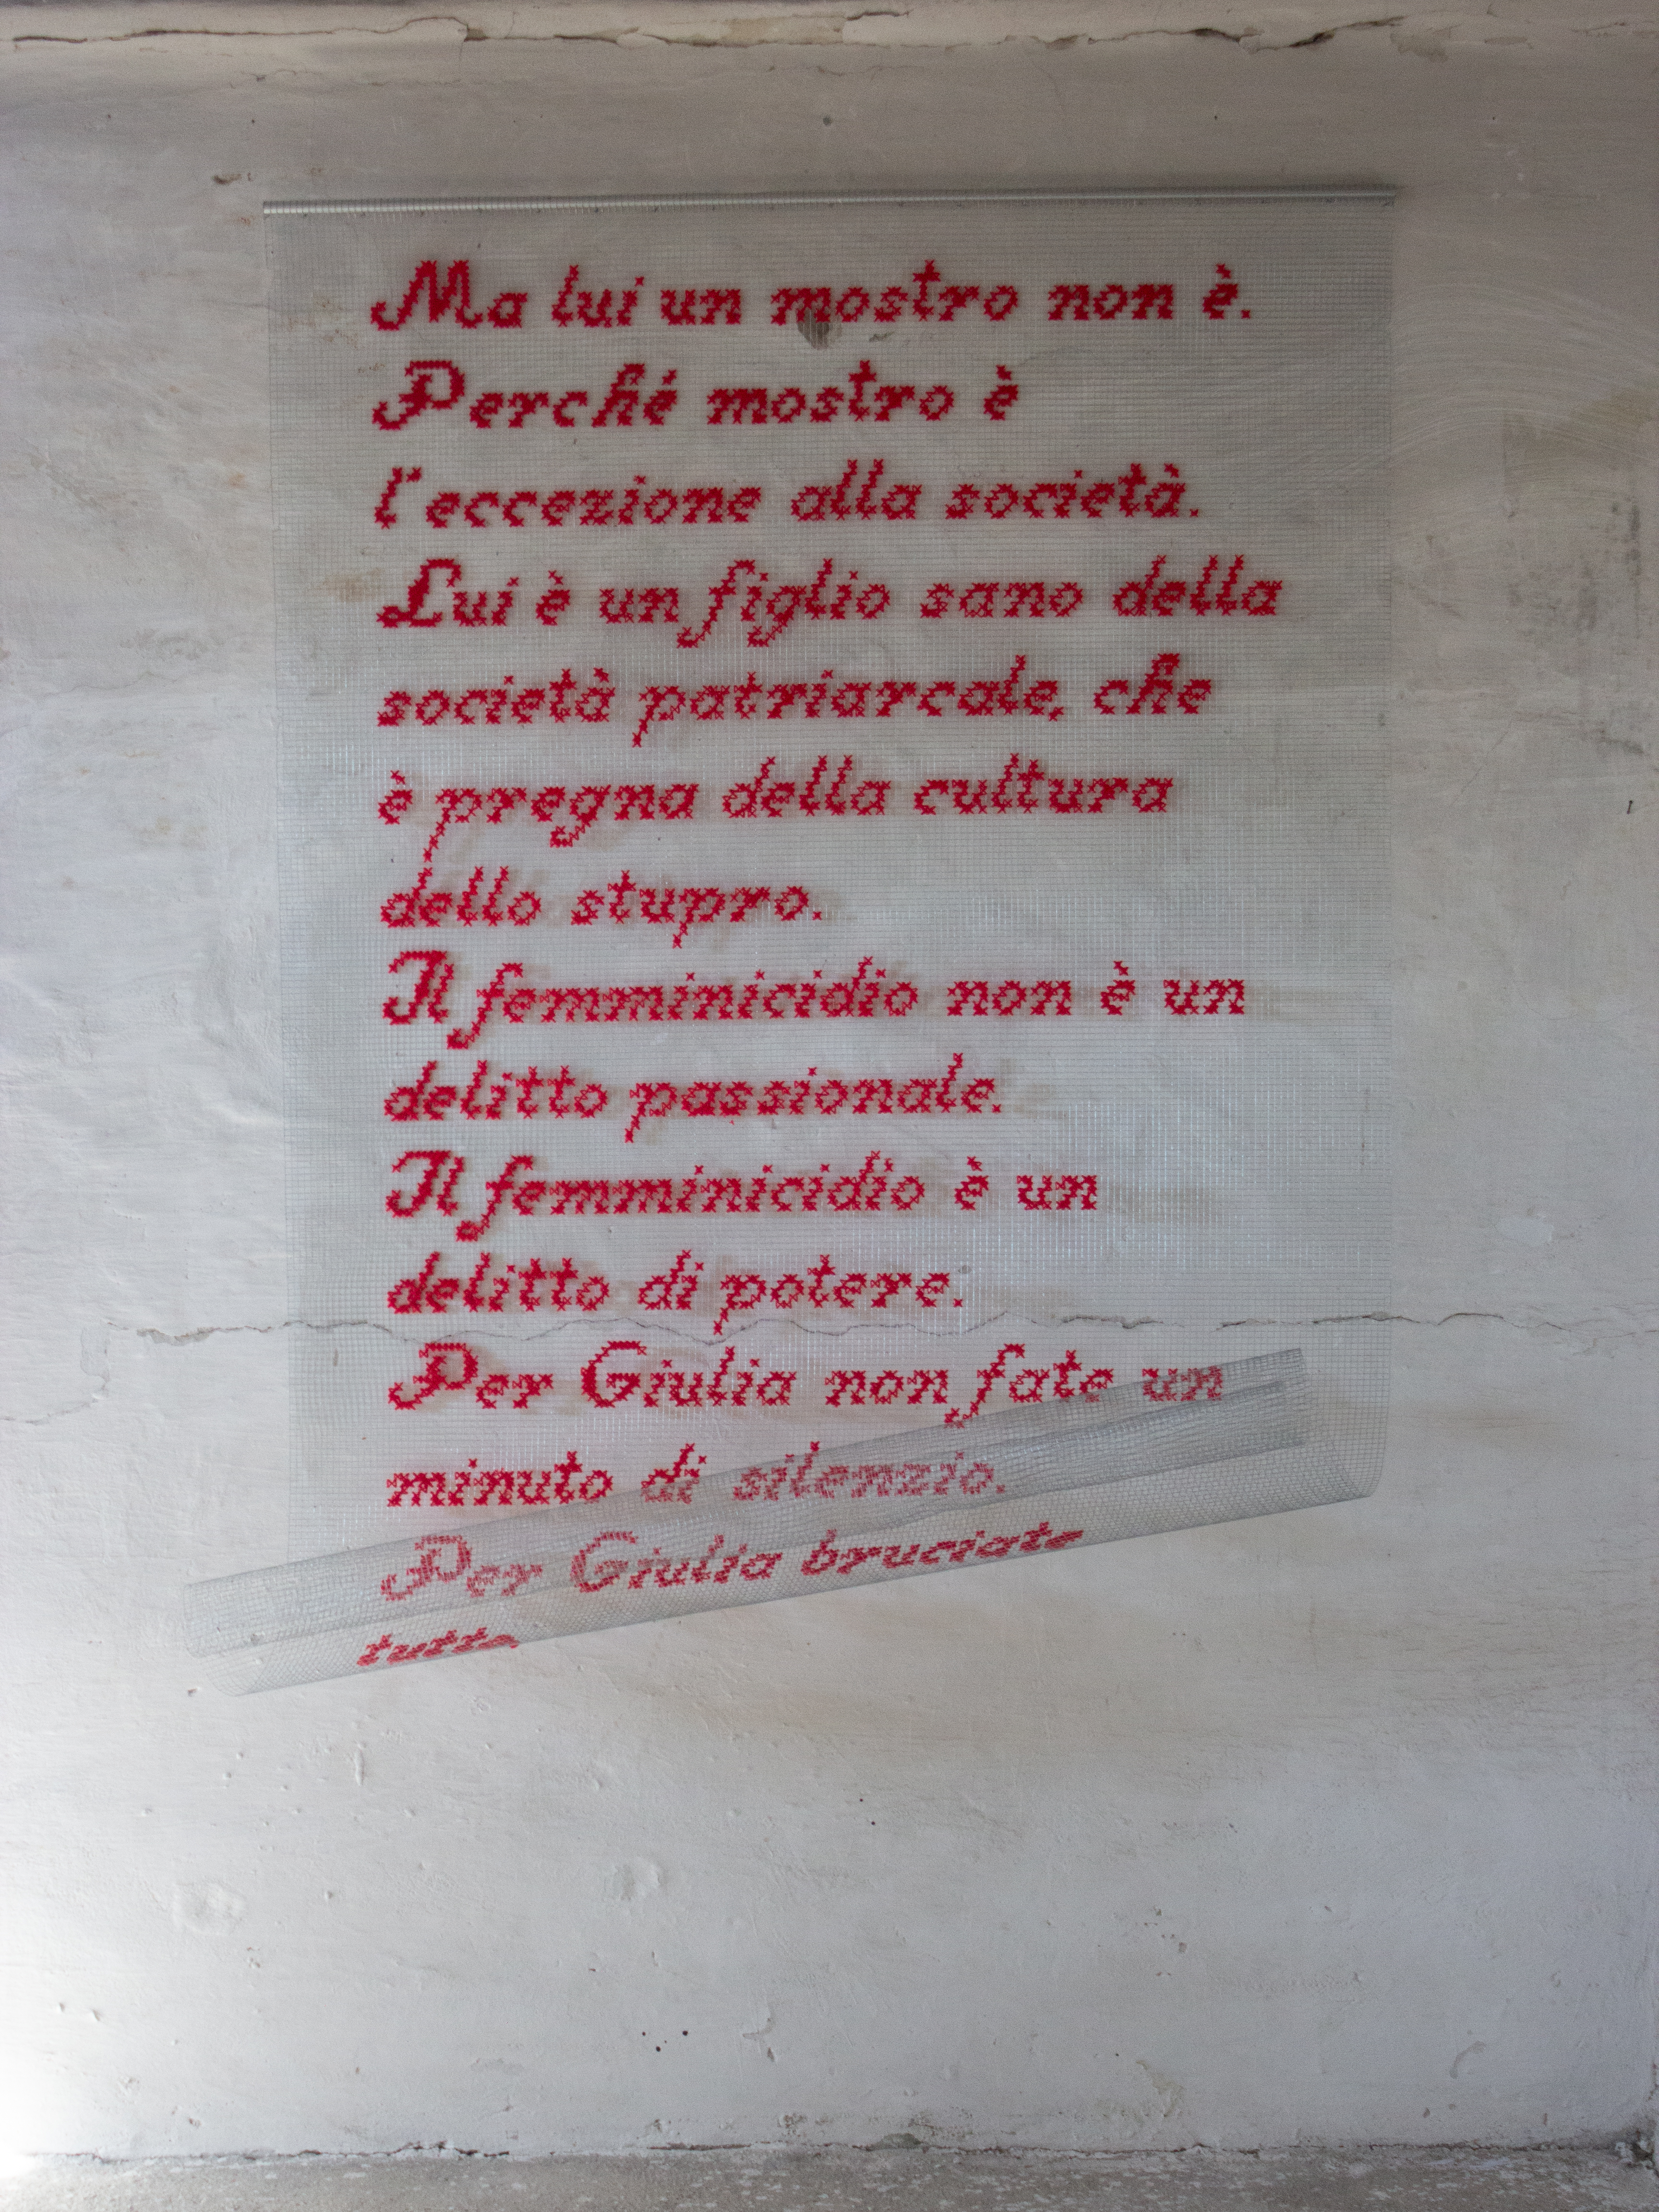 Ma lui un mostro non è.
Perché mostro è
l'eccezione alla società.
Lui è un figlio sano della
società patriarcale, che
è pregna della cultura
dello stupro.
Il femminicidio non è un
delitto passionale.
Il femminicidio è un
delitto di potere.
Per Giulia non fate un
minuto di silenzio.
Per Giulia bruciate
tutto